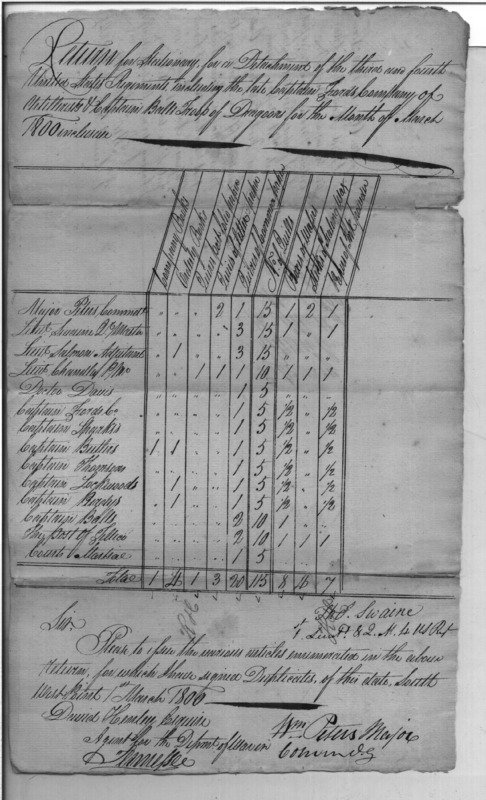 Return for Stationary, for a Detachment of the third and fourth
United States Regiments including the late Captain Fords Company of
Artillerists & Captain Balls Troop of Dragoons for the Month of March
1800 inclusive
Company Books
Orderly Books
Quires of Letter paper
No. of Quills
Major Peters Commdt. " " " 2 1 15 1 2 1
Lieut. Swaine Q. Master " " " " 3 15 1 " 1
Lieut. Salmon Adjutant " 1 " " 3 15 " " "
Lieut. Chandler P. Mr. " " 1 1 1 10 1 1 1
Doctor Davis " " " " 1 5 " " "
Captain Fords Co. " " " " 1 5 1/2 " 1/2
Captain Sparks " " " " 1 5 1/2 " 1/2
Captain Butlers 1 1 " " 1 5 1/2 " 1/2
Captain " " " " 1 5 1/2 " 1/2
Captain Lockwoods " 1 " " 1 5 1/2 " 1/2
Captain " 1 " " 1 5 1/2 " 1/2
Captain Balls " " " " 2 10 1 "
The Post of Tellico " " " " 2 10 1 1 1
Court Martial " " " " 1 5
Total 1 4 1 3 20 115 8 6 7
Thos. Swaine
Lieut. & Q. M. to 4th Regt
Sir,
Please to issue the various articles enumerated in the above
Return, for which I have signed Duplicates, of this date, South
West Point 1st March 1800
David Henley Esquire
Agent for the Departmt. of War in
Tennessee
Wm. Peters Major
Commdg